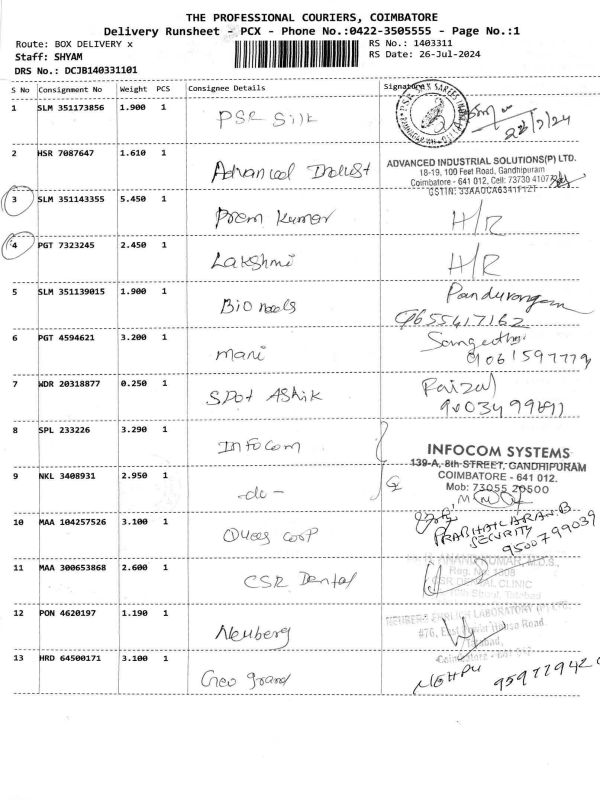 THE PROFESSIONAL COURIERS, COIMBATORE
Delivery Runsheet - PCX - Phone No.:0422-3505555 - Page No.:1
Route: BOX DELIVERY x
RS No.: 1403311
Staff: SHYAM
RS Date: 26-Jul-2024
DRS No.: DCJB140331101
S No Consignment No Weight PCS Consignee Details Signature
1 SLM 351173856 1.900 1 PSR Silk
2 HSR 7087647 1.610 1 Advanced Indust
ADVANCED INDUSTRIAL SOLUTIONS(P) LTD.
18-19, 100 Feet Road, Gandhipuram
Coimbatore - 641 012, Cell: 73730 41077
3 SLM 351143355 5.450 1 Prem Kumar H/R
4 PGT 7323245 2.450 1 Lakshmi H/R
5 SLM 351139015 1.900 1 Pandurangan
9655417162
6 PGT 4594621 3.200 1 mani Sangeetha
9061597779
7 WDR 20318877 0.250 1 Spot Ashik Faizal
8 SPL 233226 3.290 1 Infocom
INFOCOM SYSTEMS
139-A, 8th STREET, GANDHIPURAM
COIMBATORE - 641 012.
Mob: 73055 20500
9 NKL 3408931 2.950 1 -do-
10 MAA 104257526 3.100 1 Corp
PRABHAKARAN.B
SECURITY
9500799039
11 MAA 300653868 2.600 1 CSR Dental
12 PON 4620197 1.190 1 Neuberg
13 HRD 64500171 3.100 1 Geo grand